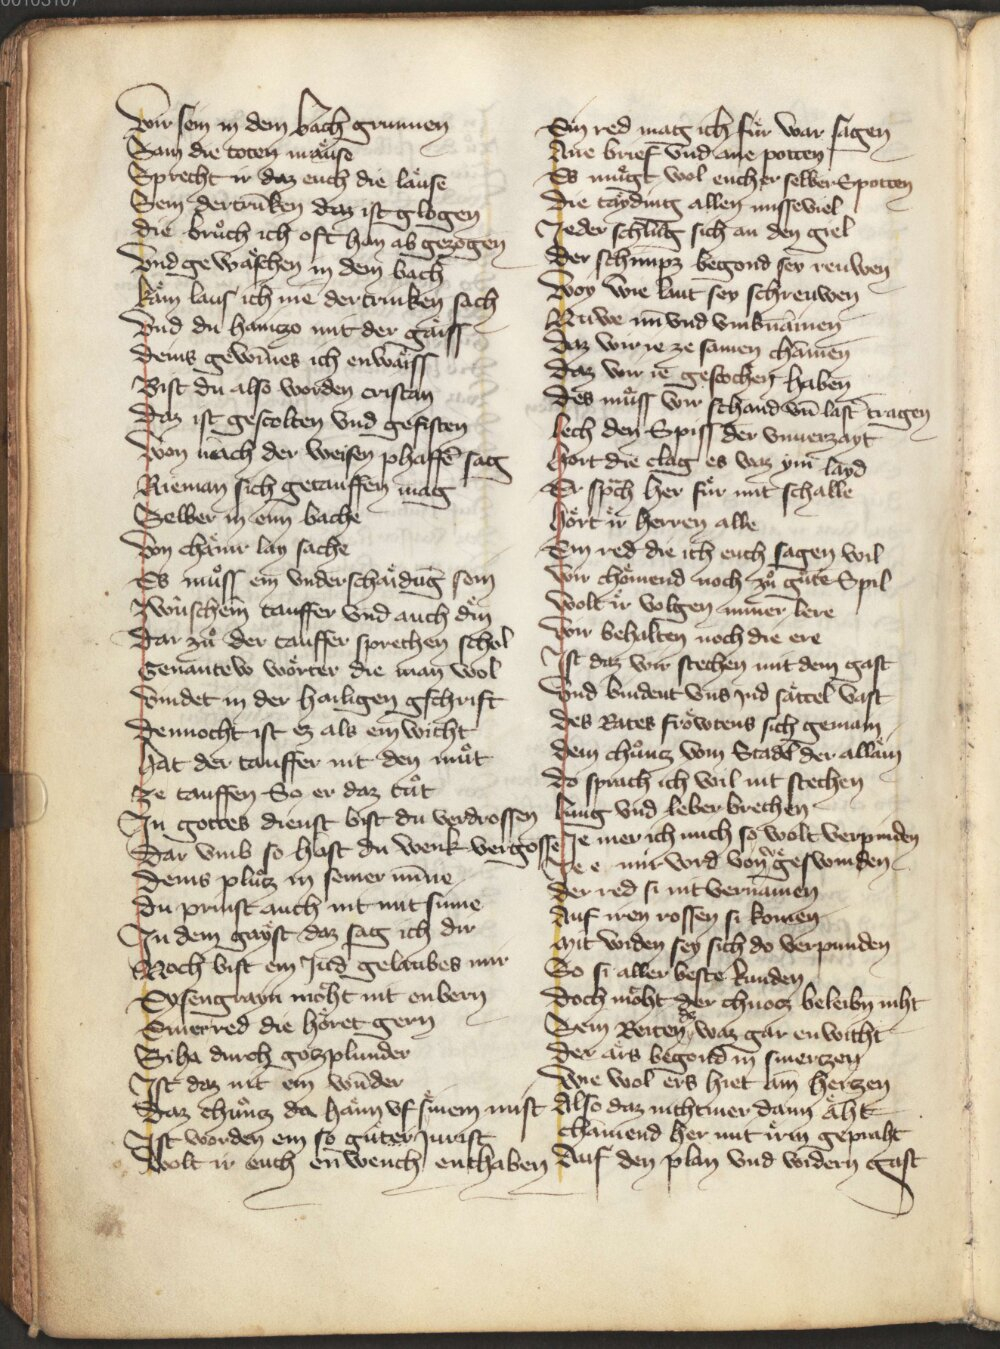 Wir sein in dem bach grunnen
Sam die toten mäuse
Sprecht ir daz euch die läuse
Sein dertrunken daz ist glogen
Die brůch ich oft han ab gezogen
Vnd gewäschen in dem bach
kain laus ich nie dertrinken sach
Vnd du haintzo mit der gaiss
Deins gewinnes ich enwaiss
Bist du also worden cristan
Daz ist gescolten vnd gefisten
Won nach der weisen phaffen sag
Nieman sich getauffen mag
Selber in eim bache
Von chainr lay sache
Es můss ein vnderschaidung sein
Zwüschein tauffer vnd auch dein
Dar zů der tauffer sprechen schol
Genantew wörter die man wol
Vindet in der hailigen gschrift
Dennocht ist ez als ein wicht
Hat der tauffer nit den můt
Ze tauffen So er daz tůt
In gottes dienst bist du verdrossen
Dar vmb so hast du wenk vergossen
Deins plůtz in seiner minne
Du prinst auch nit mit sinne
In dem gayst daz sag ich dir
Noch bist ein Jud gelaubes mir
Eysengrayn möht nit enbern
Einer red die höret gern
Siha durch gotzplunder
Ist daz nit ein wunder
Daz chůntz da haim vf seinem mist
Ist worden ein so gůter Jurist
Wolt ir euch ein wench enthaben
Ein red mag ich für war sagen
Ane brief vnd ane potten
Es mügt wol eucher selber Spotten
Die tayding allen misseviel
Jeder schlůg sich an den giel
Der schimpz begond sey reuwen
Woy wie laut sey schreuwen
Nu we im vnd vmb namen
Daz wir ie ze samen chamen
Daz wir ie gestochen haben
Des můss wir schand vnd laster tragen
Lech den Spiss der vnuerzayt
Hort die clag es waz ym layd
Er sprach her für mit schalle
Hört ir herren alle
Ein red die ich euch sagen wil
Wir chömend noch zů gůte Spil
Wolt ir volgen miner lere
Wir behalten noch die ere
Ist daz wir stechen mit dem gast
Vnd bindent vns jnd sättel vast
Des Rates fröwtens sich gemain
Dem chůntz vom Stadel der allain
Do sprach ich wil nit stechen
Lung vnd leber brechen
Je mer ich mich so wolt verpinden
Je e mir wird von geswinden
Der red si nit vernamen
Auf iren rossen si komen
Mit widen sey sich do verpunden
So si aller beste kunden
Doch möht der chuotz beleibn niht
Sein Reiten daz waz gar enwicht
Der ars begond in smertzen
Wie wol ers hiet am hertzen
Also daz nichtmer dann äht
Chamend her mit irm gepraht
Auf den plan vnd widern gast